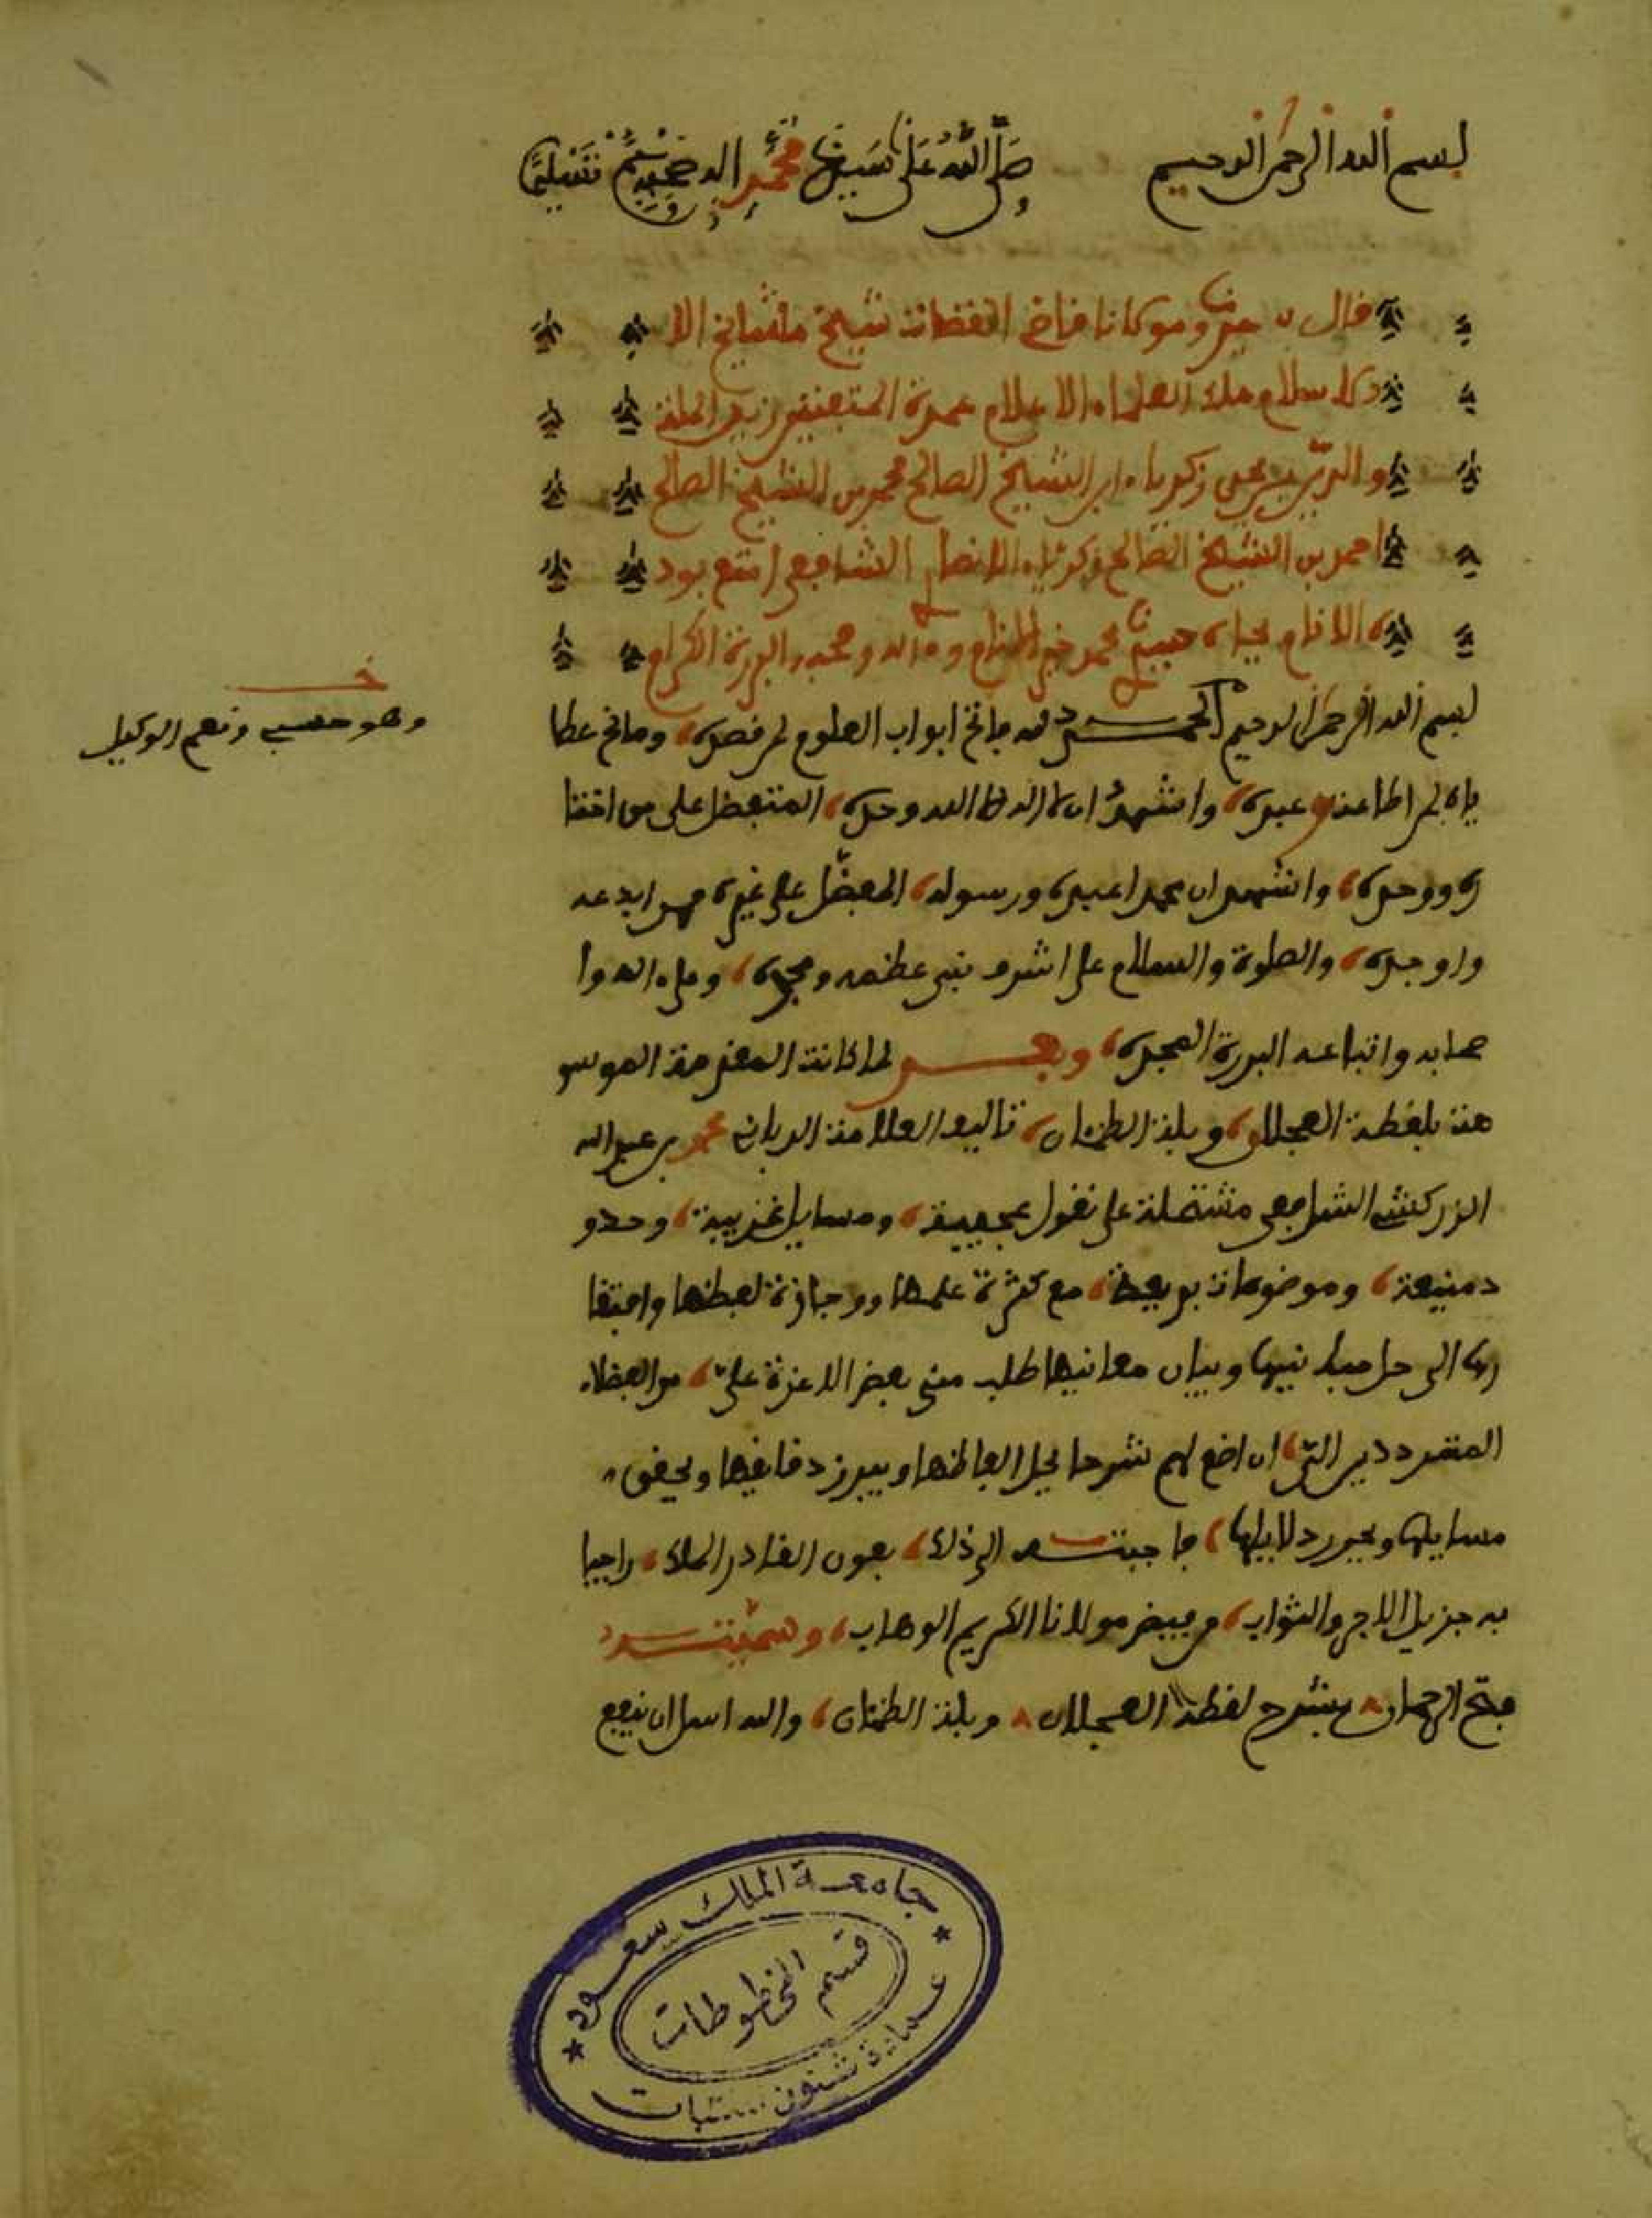 بسم الله الرحمن الرحيم صلى الله على سيدنا محمد واله وصحبه وسلم تسليما
قال سيدنا ومولانا قاضي القضاة شيخ مشايخ الا
سلام ملك العلماء الاعلام عمدة المحققين زين الملة
والدين ابو يحيى زكرياء ابن الشيخ الصالح محمد بن الشيخ الصالح
احمد بن الشيخ الصالح زكرياء الانصاري الشافعي امتع بوجود
ه الانام بجاه حبيبنا محمد خير الانام وءاله وصحبه البررة الكرام
بسم الله الرحمن الرحيم الحمد لله فاتح ابواب العلوم لمن قصده، ومانح عطا
ياه لمن اطاعه وعبده، واشهد ان لا اله الا الله وحده، المتفضل على من اختا
ره ووحده، واشهد ان محمدا عبده ورسوله، المفضل على غيره ممن ابدعه
واوجده، والصلوة والسلام على اشرف نبي عظمه ومجده، وعلى ءاله وا
صحابه واتباعه البررة المجده، وبعد لما كانت المقدمة الموسو
مة بلقطة العجلان، وبلة الظمئان، تاليف العلامة الرباني محمد بن عبد الله
الزركشي الشافعي مشتملة على نقول عجيبة، ومسايل غريبة، وحدو
د منيعة، وموضوعات بديعة، مع كثرة علمها ووجازة لفظها وافتقا
رها الى حل مبانيها وبيان معانيها طلب مني بعض الاعزة علي، من الفضلاء
المترددين الي، ان اضع لهم شرحا يحل الفاظها ويبرز دقايقها ويحقق
مسايلها ويحرر دلايلها، فاجبته الى ذلك، بعون القادر المالك، راجيا
به جزيل الاجر والثواب، من فيض مولانا الكريم الوهاب، وسميته
فتح الرحمان بشرح لقطة العجلان وبلة الظمئان، والله اسال ان ينفع
وهو حسبي ونعم الوكيل
جامعة الملك سعود
قسم المخطوطات
عمادة شئون المكتبات